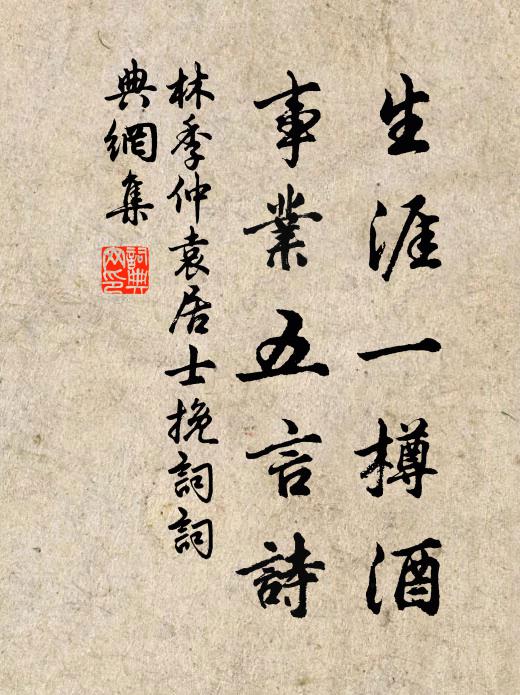 生涯一樽酒
事業五言詩
林季仲袁居士挽詞詞
典網集
詞典